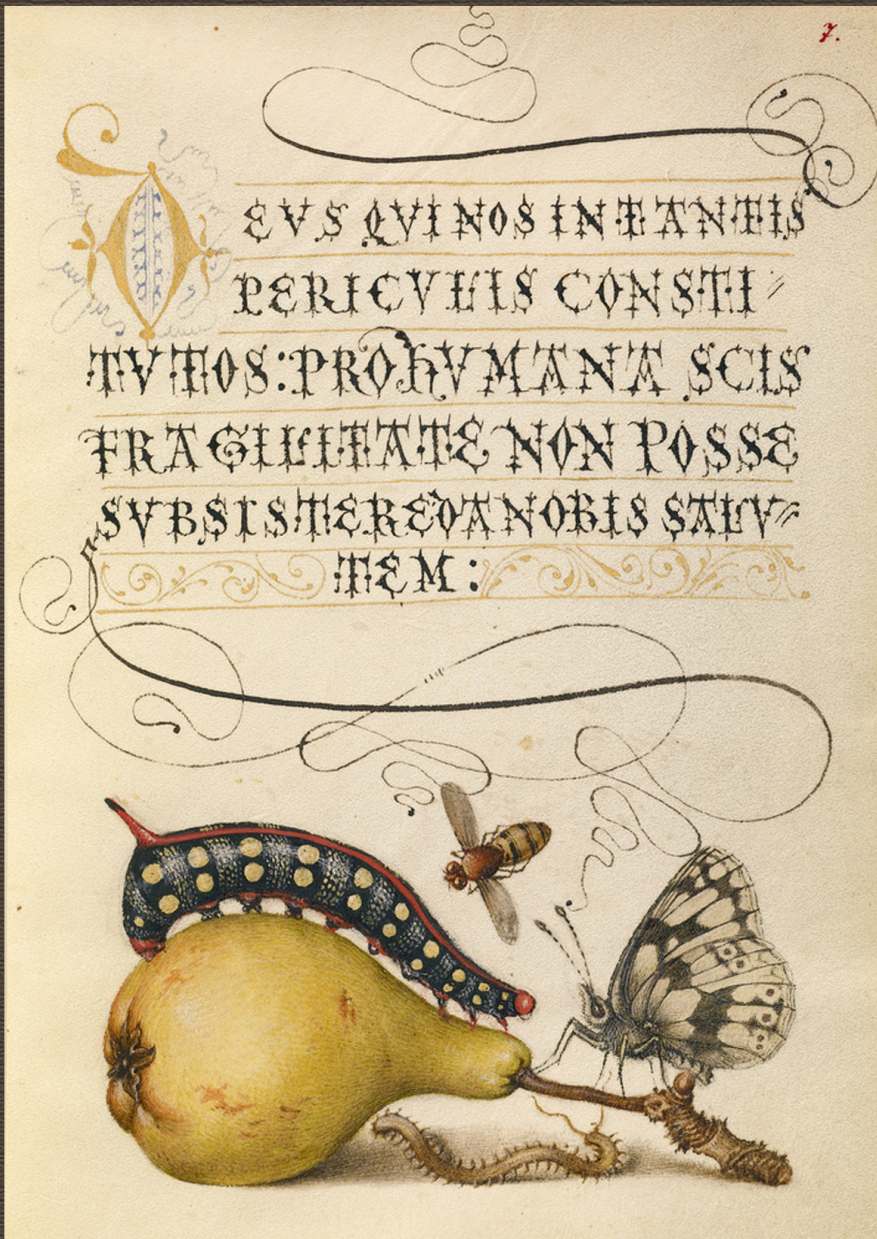 7.
DEVS QVI NOS IN TANTIS
PERICVLIS CONSTI〃
TVTOS: PRO hVMANA SCIS
FRAGILITATE NON POSSE
SVBSISTERE DA NOBIS SALV〃
TEM: